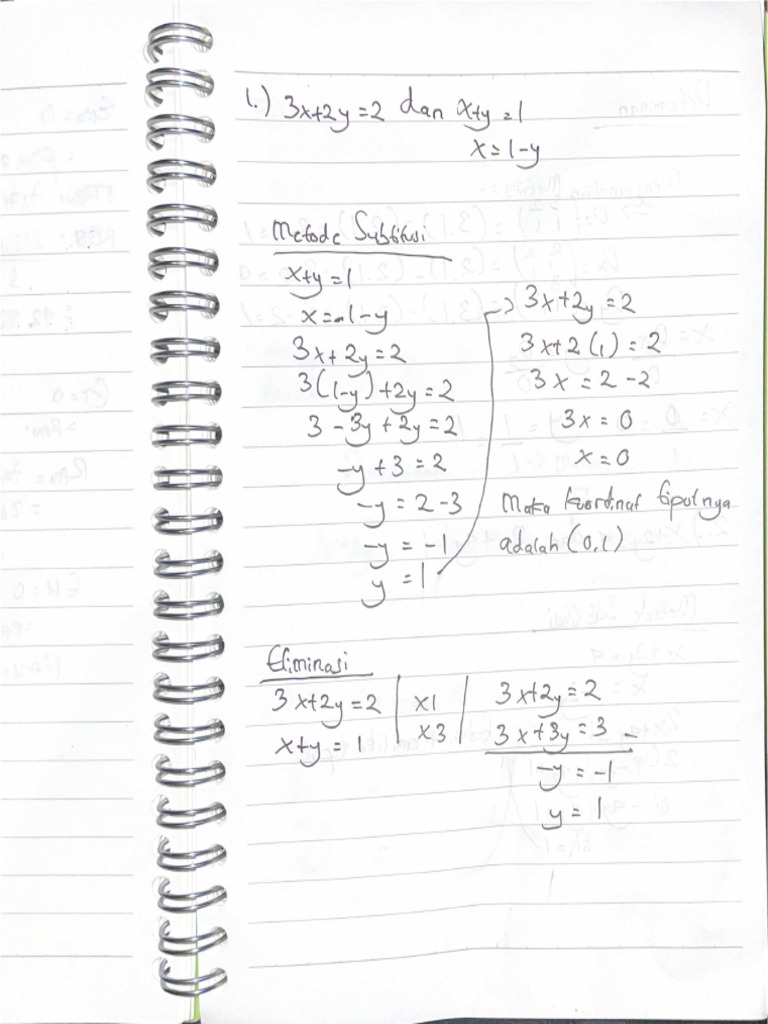 1.) 3x+2y=2 dan x+y=1
x=1-y
Metode Subtitusi
x+y=1
x=1-y
3x+2y=2
3(1-y)+2y=2
3-3y+2y=2
-y+3=2
-y=2-3
-y=-1
y=1
-> 3x+2y=2
3x+2(1)=2
3x=2-2
3x=0
x=0
Maka koordinat
adalah (0,1)
Eliminasi
3x+2y=2 | x1 | 3x+2y=2
x+y=1 | x3 | 3x+3y=3 -
-y=-1
y=1